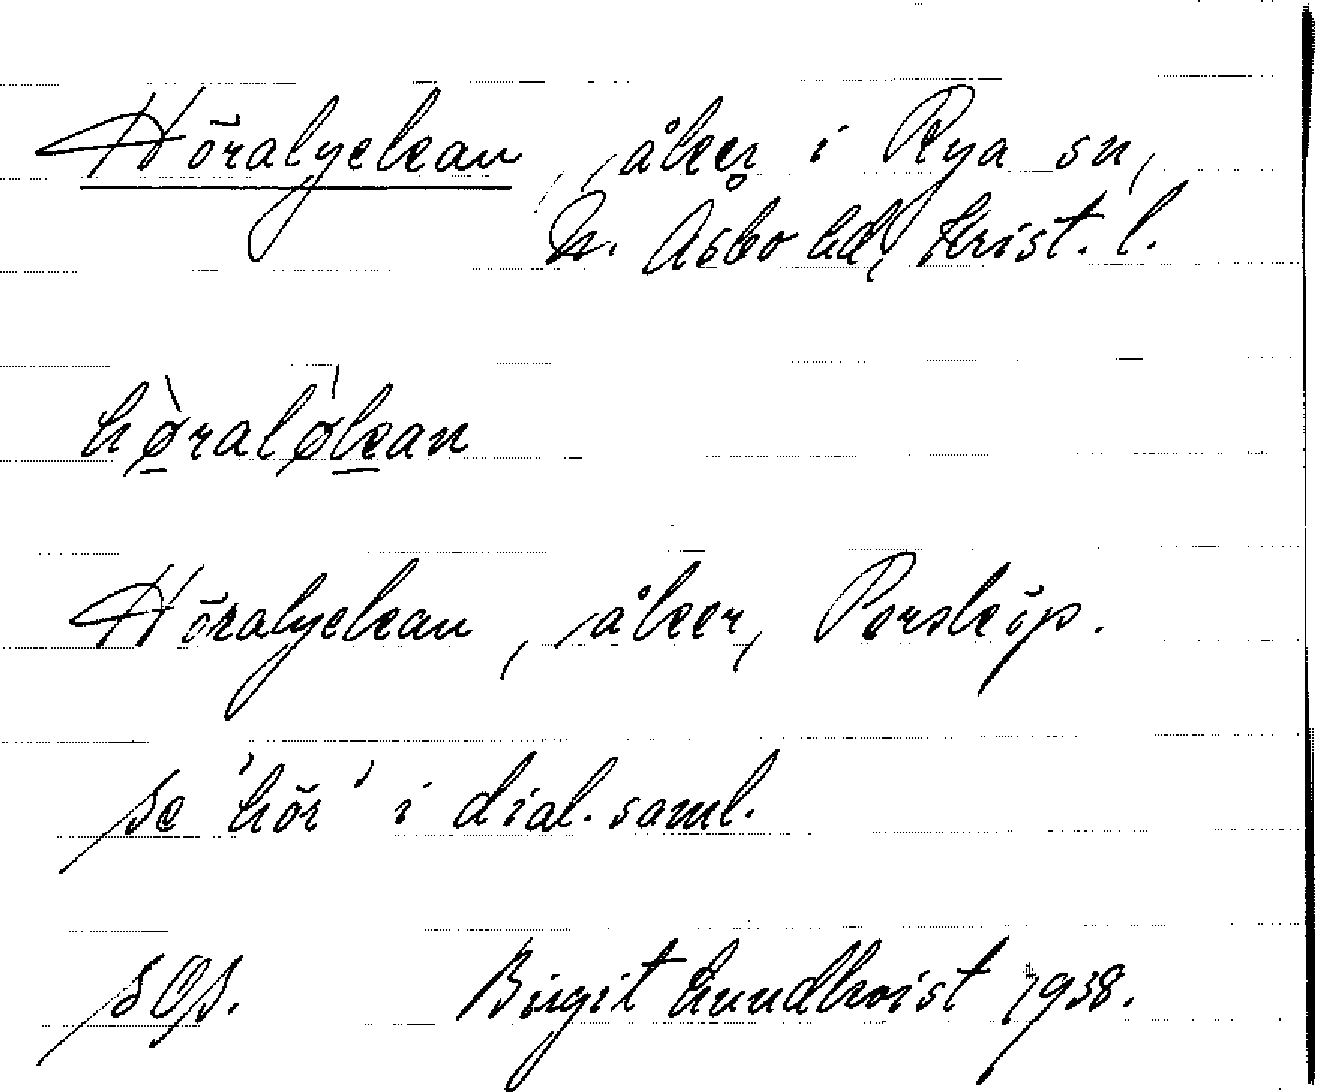 Höralyckan, åker i Rya sn,
N. Åsbo hd, Krist. l.
hø̀raløkan
Höralyckan, åker, Perslöp.
se 'hör' i dial. saml.
Birgit Lundkvist 1938.